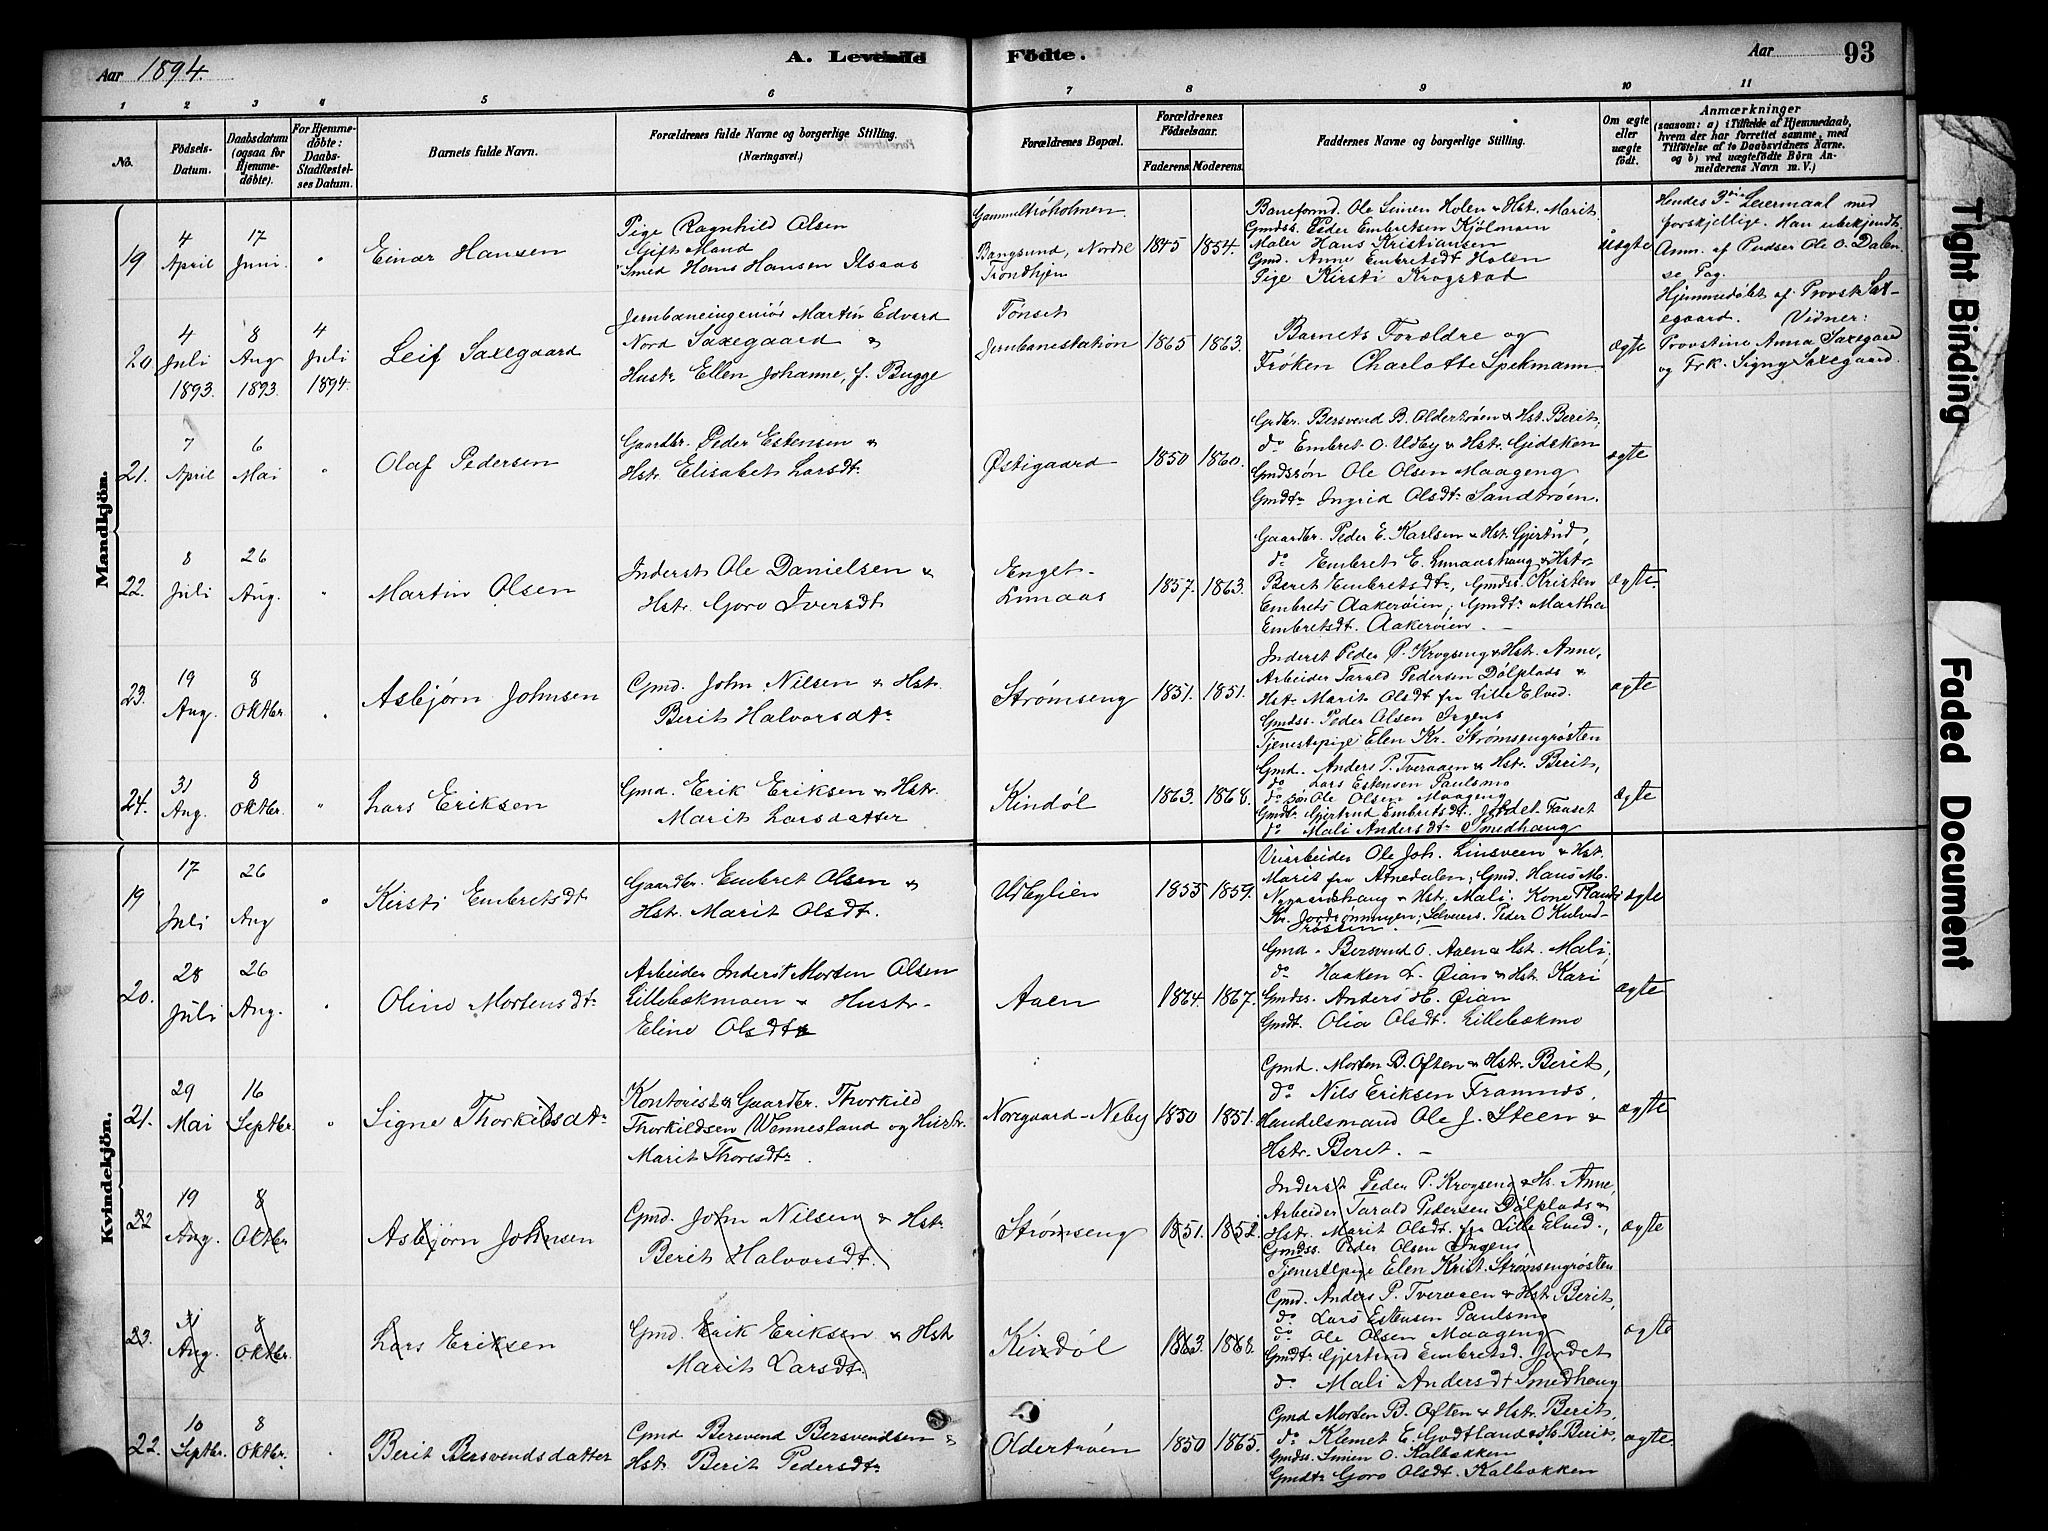 Aar 1894.
A. Levende Fødte.
Aar 93
1 2 3 4 5 6 7 8 9 10 11
No.
Fødsels-Datum.
Daabsdatum (ogsaa for Hjemmedøbte).
For Hjemmedøbte: Daabs-Stadfæstelses Datum.
Barnets fulde Navn.
Forældrenes fulde Navne og borgerlige Stilling.
(Næringsvei.)
Forældrenes Bopæl.
Forældrenes Fødselsaar.
Faderens. Moderens.
Faddernes Navne og borgerlige Stilling.
Om ægte eller uægte født.
Anmærkninger
(saasom: a) i Tilfælde af Hjemmedaab,
hvem der har forrettet samme, med
Tilføielse af to Daabsvidners Navne.
og b) ved uægtefødte Børn An-
melderens Navn m. V.)
Mandkjøn.
19
4 April
17 Juni.
"
Einar Hansen
Pige Ragnhild Olsen
Gift Mand
Smed Hans Hansen Ilsaas
Gammeltrøholmen.
Bangsund, Nordre
Trondhjem
1845
1854.
Baneformd. Ole Simen Holen & Hst. Marit.
Gmdss. Peder Embretsen Kjølmoen
Maler Hans Kristiansen
Gmd. Anne Embretsdt Holen
Pige Kirsti Krogstad
uægte
Hendes 3die Leiermaal med
forskjellige. Han ubekjendt.
Anm. af Pudser Ole O. Dalen,
se Pag.
20
4 Juli 1893.
8 Aug 1893.
4 Juli 1894.
Leif Saxegaard
Jernbaneingeniør Martin Edvard
Nord Saxegaard &
Hustr. Ellen Johanne, f. Bugge
Tønset
Jernbanestation
1865
1863.
Barnets Forældre og
Frøken Charlotte Spekmann
ægte
Hjemmedøbt af Provst Sax-
egaard. Vidner:
Provstine Anna Saxegaard
og Frk. Signy Saxegaard.
21.
7 April
6 Mai
"
Olaf Pedersen
Gaardbr. Peder Estensen &
Hstr. Elisabet Larsdt.
Østigaard
1850
1860.
Grdbr. Bersvend B. Oldertrøen & Hst. Berit,
do Embret O. Udby & Hstr. Gidsken
Gmdssøn Ole Olsen Maageng
Gmdtr Ingrid Olsdtr Sandtrøen.
ægte
22.
8 Juli
26 Aug.
"
Martin Olsen
Inderst Ole Danielsen &
Hstr. Goro Iversdt
Enget-
Lunaas
1857.
1863.
Gaardbr. Peder E. Karlsen & Hst. Gjertrud,
do Embret E. Lunaashaug & Hstr.
Berit Embretsdtr, Gmdss. Kristen
Embrets Aakerøien, Gmdtr Martha
Embretsdt. Aakerøien. —
ægte.
23.
19 Aug.
8 Oktbr.
"
Asbjørn Johnsen
Gmd. John Nilsen & Hstr.
Berit Halvorsdtr
Strømseng
1851.
1851.
Inderst Peder P. Krogseng & Hst. Anne,
Arbeider Tarald Pedersen Dølplads &
Hstr. Marit Olsdt fra Lille Elved.
Gmdss. Peder Olsen Ingens
Tjenestepige Elen Kr. Strømsengrøsten
ægte
24.
31 Aug.
8 Oktbr.
"
Lars Eriksen
Gmd. Erik Eriksen & Hstr.
Marit Larsdatter
Kindøl
1863.
1868.
Gmd. Anders P. Tveraaen & Hstr. Berit,
do Lars Estensen Paulsmo
do søn Ole Olsen Maageng
Gmdtr Gjertrud Embretsdt. Jordet Faaset
do Mali Andersdtr Smedhaug
ægte
Kvindekjøn.
19
17 Juli
26 Aug
"
Kirsti Embretsdt
Gaardbr. Embret Olsen &
Hst. Marit Olsdt.
Udbylien
1855
1859.
Veiarbeider Ole Joh. Linsveen & Hst.
Marit fra Atnedalen; Gmd. Hans M.
Nygaardshaug & Hstr. Mali; Kone
Selveiers. Peder O.
ægte
20.
28 Juli
26 Aug.
"
Oline Mortensdtr
Arbeider Inderst Morten Olsen
Lillebækmoen & Hustr-
Eline Olsdtr
Aaen
1864.
1867.
Gmd. Bersvend O. Aaen & Hst. Mali,
do Haaken L. Øian & Hst. Kari
Gmdss. Anders H. Øian
Gmdt. Olia Olsdt. Lillebækmo
ægte
21.
29 Mai
16 Septbr.
"
Signe Thorkildsdtr
Kontorist & Gaardbr. Thorkild
Thorkildsen Wennesland og Hustr.
Marit Thoresdtr
Norgaard-Neby
1850
1851.
Gmd. Morten B. Often & Hstr. Berit,
do Nils Eriksen Framnds.
Handelsmand Ole J. Steen &
Hstr. Beret. —
ægte
22
19 Aug.
8 Oktbr
Asbjørn Johnsen
Gmd. John Nilsen & Hstr.
Berit Halvorsdt.
Strømseng
1851.
1852.
Inderst Peder P. Krogseng & Hs. Anne,
Arbeider Tarald Pedersen Dølplads &
Hstr. Marit Olsdt. fra Lille Elved.,
Gmdss. Peder Olsen Ingens
Tjenestepige Elen Krist. Strømsengrøsten
ægte
23.
31 Aug.
8 Oktbr.
Lars Eriksen
Gmd. Erik Eriksen & Hst
Marit Larsdt.
Kindøl
1863.
1868.
Gmd. Anders P. Tveraaen & Hst. Berit,
do Lars Estensen Paulsmo
do Ole Olsen Maageng
Gmdtr Gjertrud Embretsd. Jordet
do Mali Andersdt Smedhaug
ægte
22.
10 Septbr.
8 Oktbr.
"
Berit Bersvendsdatter
Gmd Bersvend Bersvendsen &
Hstr. Berit Pedersdtr
Oldertrøen
1850
1865.
Gmd Morten B. Often & Hstr. Berit,
do Klemet E. Godtland & Hs. Berit,
Gmdss. Simen O. Kalbækken
Gmdtr Goro Olsdt. Kalbækken
ægte.
Tight Binding
Faded Document